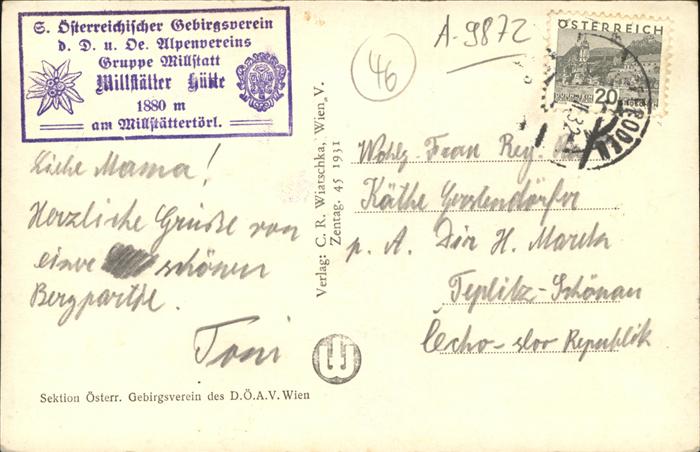 S. Österreichischer Gebirgsverein
d. D. u. Oe. Alpenvereins
Gruppe Millstatt
Millstätter Hütte
1880 m
am Millstättertörl.
46
A-9872
ÖSTERREICH
20
32
Liebe Mama!
Herzliche Grüße von
einer schönen
Bergpartie.
Toni
Sektion Österr. Gebirgsverein des D.Ö.A.V. Wien
Verlag: C. R. Wiatschka, Wien V.
Zentag. 45 1931
W
Wohlg. Frau Reg.
Käthe Gerstendörfer
p. A. Dir H.
Teplitz-Schönau
Čecho-slov Republik